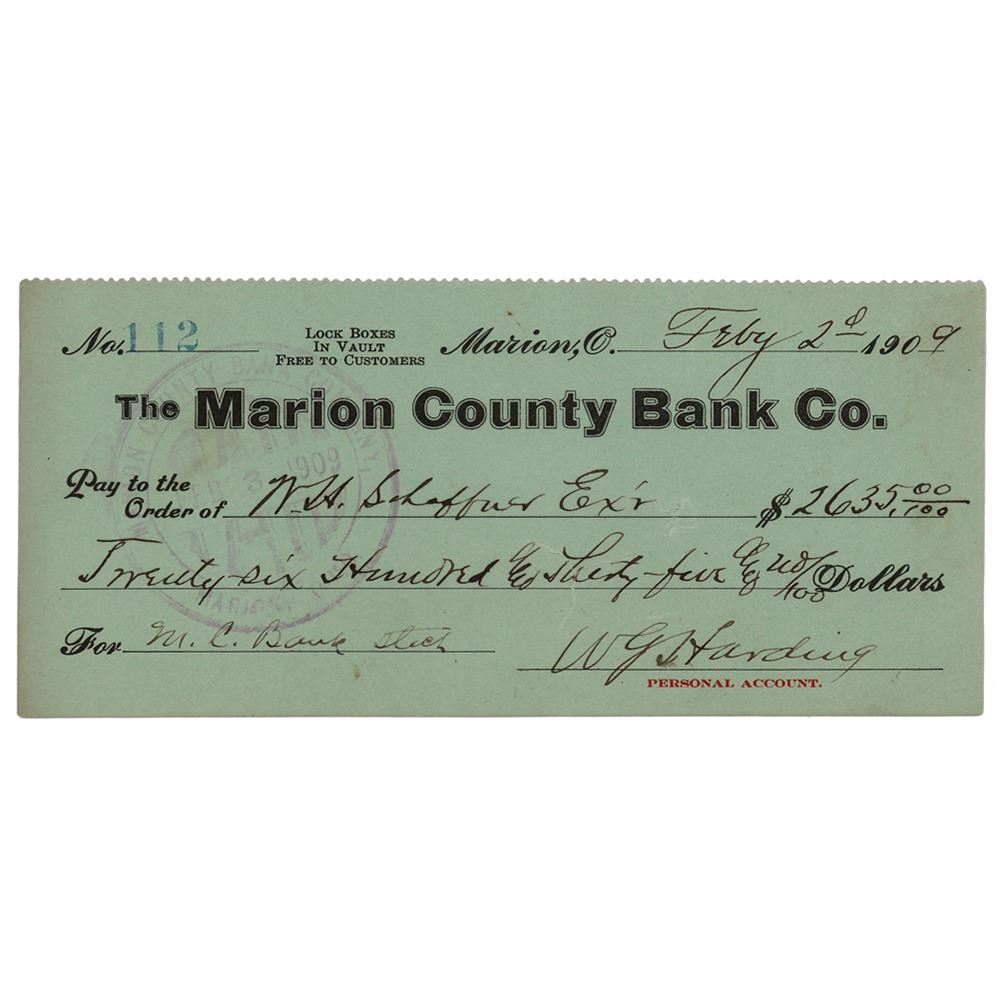 No. 112
LOCK BOXES
IN VAULT
FREE TO CUSTOMERS
Marion, O. Feby 2d 1909
The Marion County Bank Co.
Pay to the
Order of W. H. Schaffner Ex'r $2635.00/100
Twenty-six Hundred & Thirty-five & no/100 Dollars
For M. C. Bank stock
W G Harding
PERSONAL ACCOUNT.
MARION COUNTY BANK COMPANY,
3 1909
PAID
MARION,